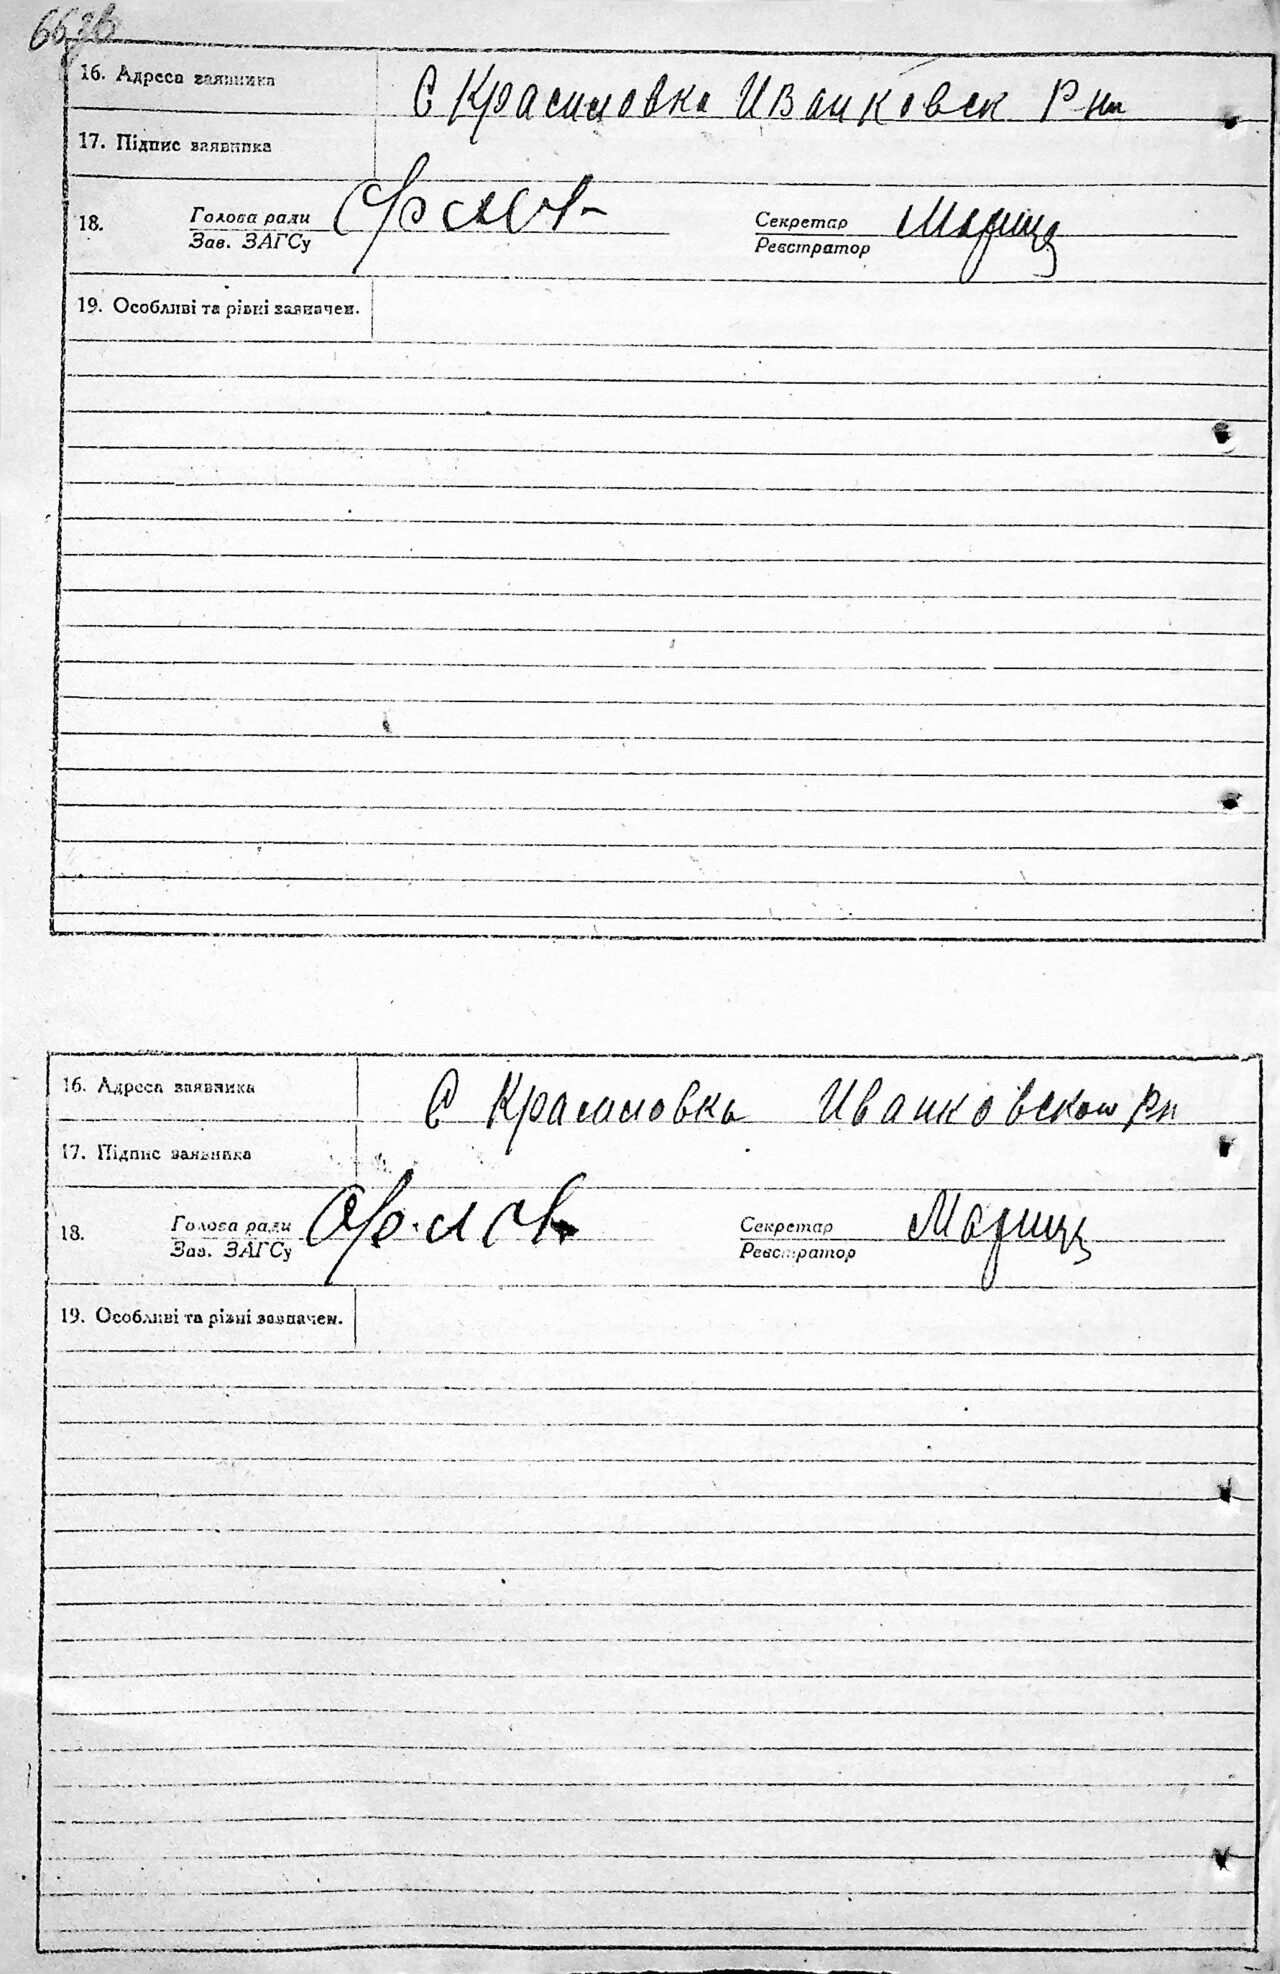 16. Адреса заявника С Красиловка Иванковск Рна
17. Підпис заявника
18. Голова ради Секретар
Зав. ЗАГСу Реєстратор
19. Особливі та рівні зазначен.
16. Адреса заявника С Красиловка Иванковском Рн
17. Підпис заявника
18. Голова ради Орлов Секретар
Зав. ЗАГСу Реєстратор
19. Особливі та різні зазначен.